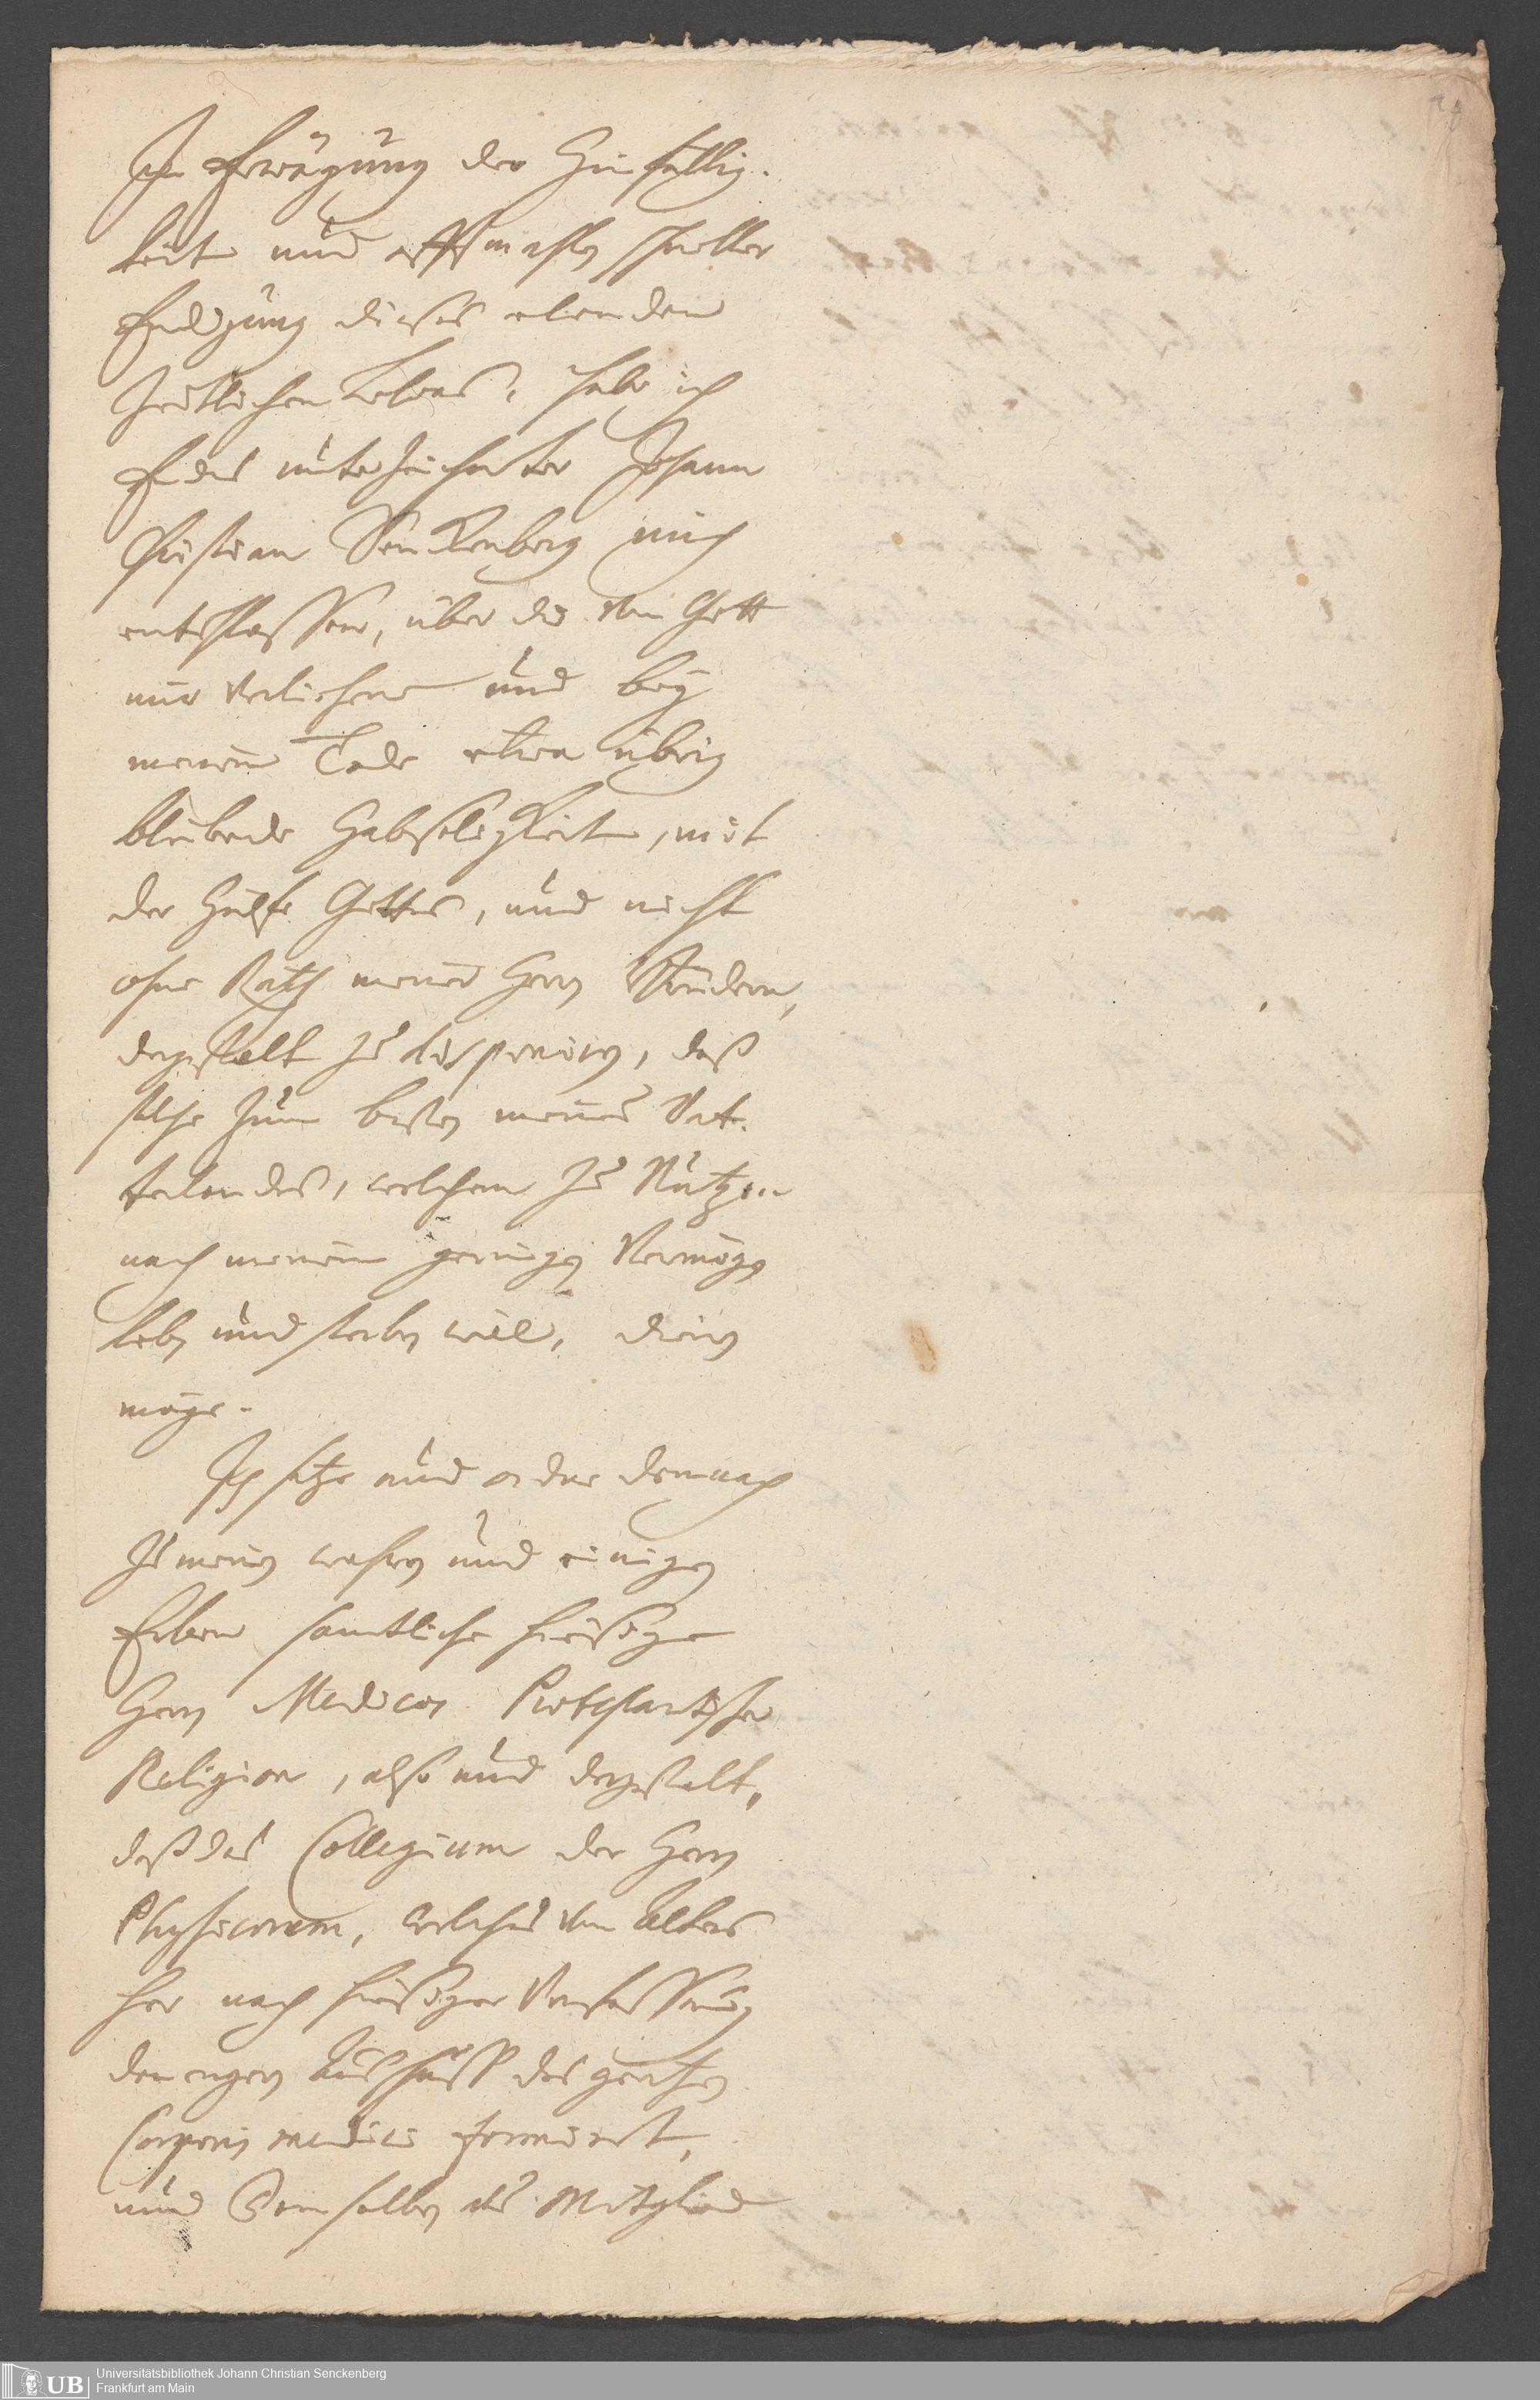 In Erwägung der Hinfällig-
keit und offtmahls schneller
Endigung dieses elenden
Zeitlichen Lebens, habe ich
Endes unterzeichneter Johann
Christian Senckenberg mich
entschlossen, über die von Gott
mir verliehene und bey
meinem Tode etwa übrig
bleibende Habseligkeiten, mit
der Hülfe Gottes, und nicht
ohne Rath meines Herrn Bruders,
dergestalt zu disponiren, daß
solche zum besten meines Vat-
terlandes, welchem zu Nutzen
nach meinem geringen Vermögen
leben und sterben will, dienen
möge.
Ich setze und ordne demnach
zu meinen wahren und einigen
Erben samtliche hiesige
Herrn Medicos Protestantischer
Religion, also und dergestalt,
daß das Collegium der Herrn
Physicorum, welches von Alters
her nach hiesiger Verfassung
den engern Ausschuss des gantzen
Corporis medici formiret,
und Demselben als Mitglied
Universitätsbibliothek Johann Christian Senckenberg
UB
Frankfurt am Main